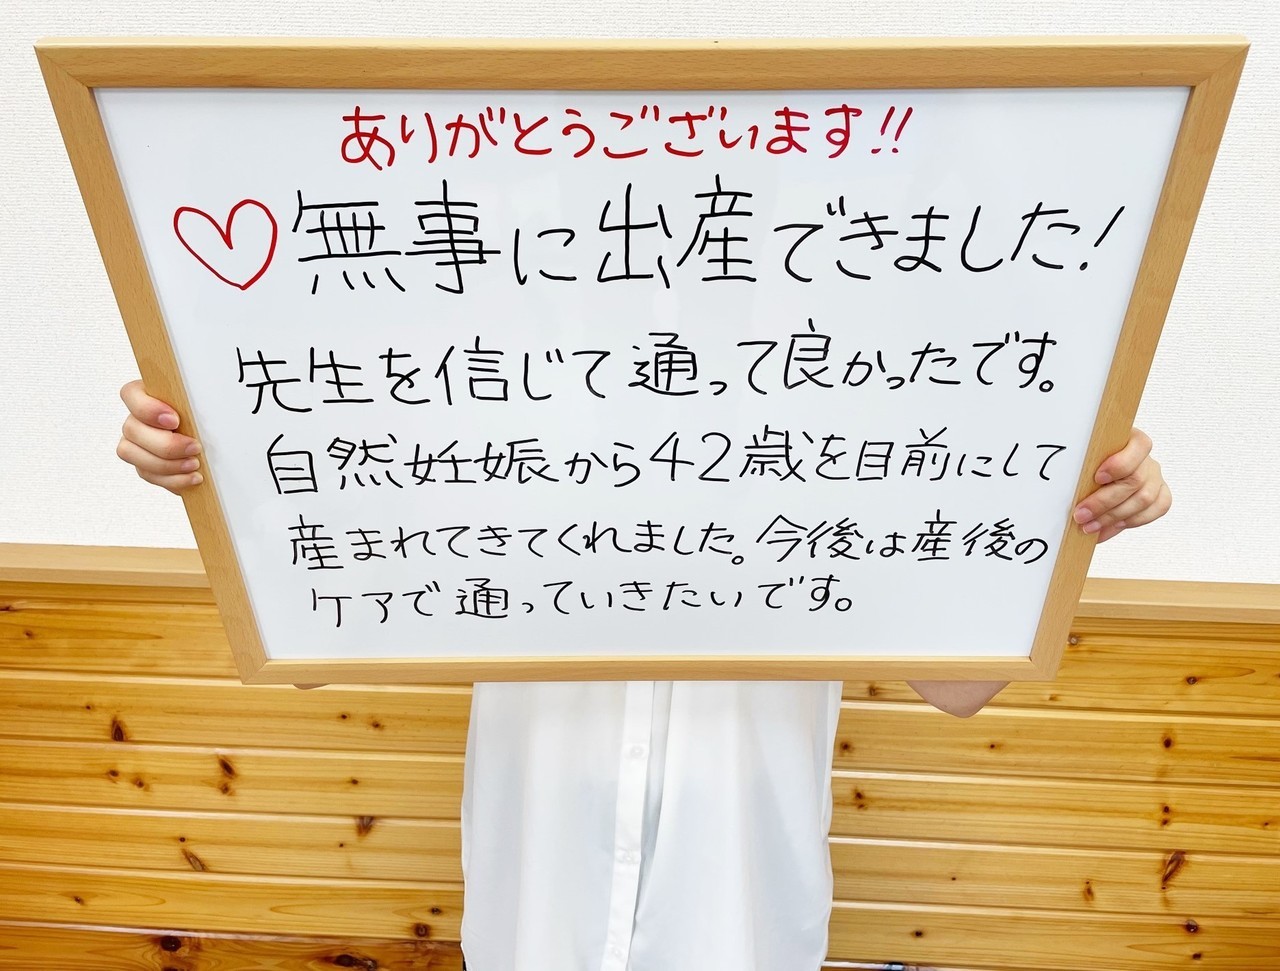 ありがとうございます!!
♡無事に出産できました!
先生を信じて通って良かったです。
自然妊娠から42歳を目前にして
産まれてきてくれました。今後は産後の
ケアで通っていきたいです。